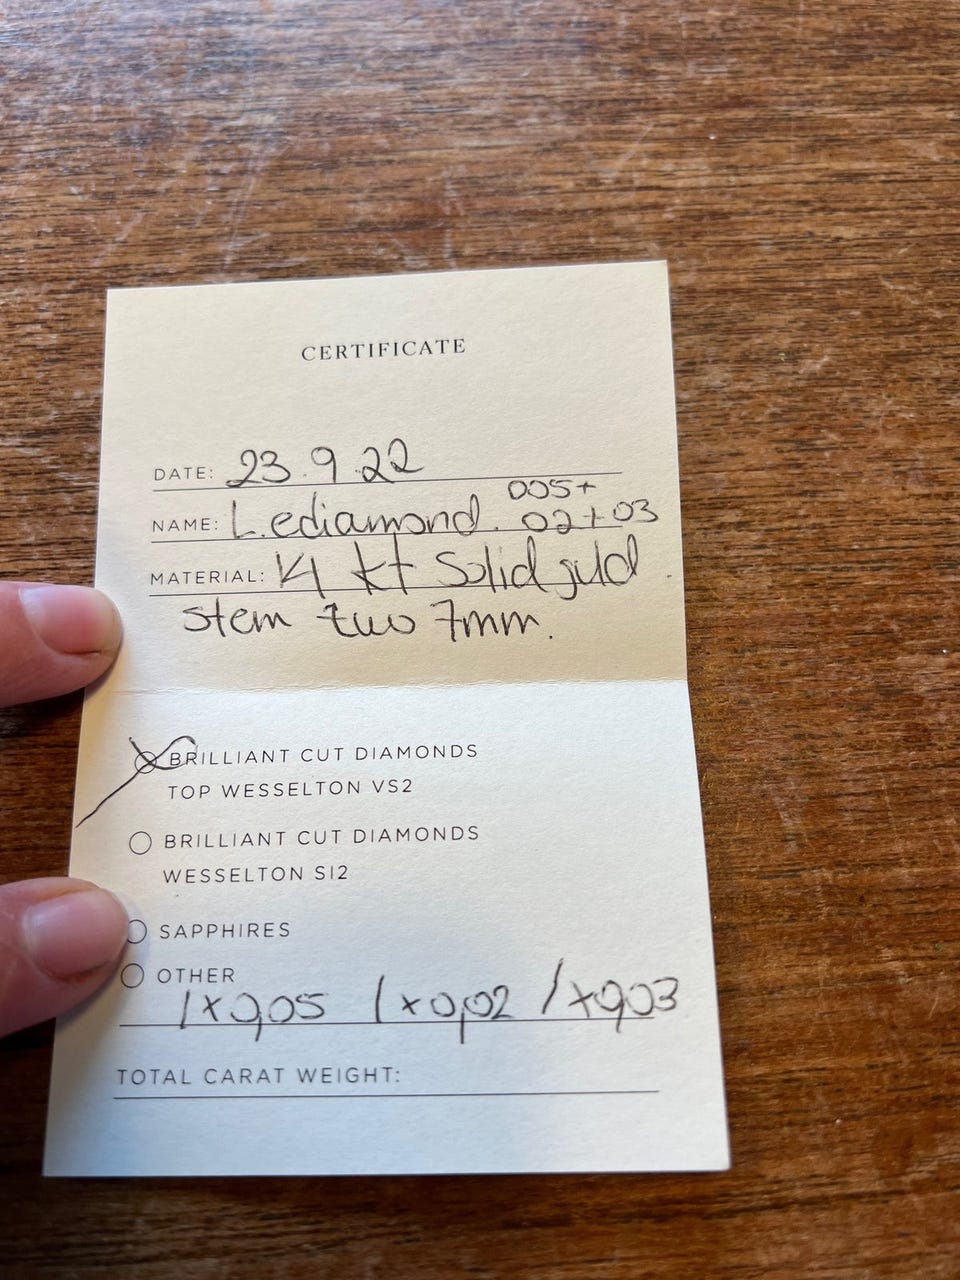 CERTIFICATE
DATE: 23.9.22
005+
NAME: Lediamond. 02+03
MATERIAL: 14 kt Solid guld.
stem two 7mm.
BRILLIANT CUT DIAMONDS
TOP WESSELTON VS2
BRILLIANT CUT DIAMONDS
WESSELTON SI2
SAPPHIRES
OTHER
1x0,05 1x0,02 1x0,03
TOTAL CARAT WEIGHT: